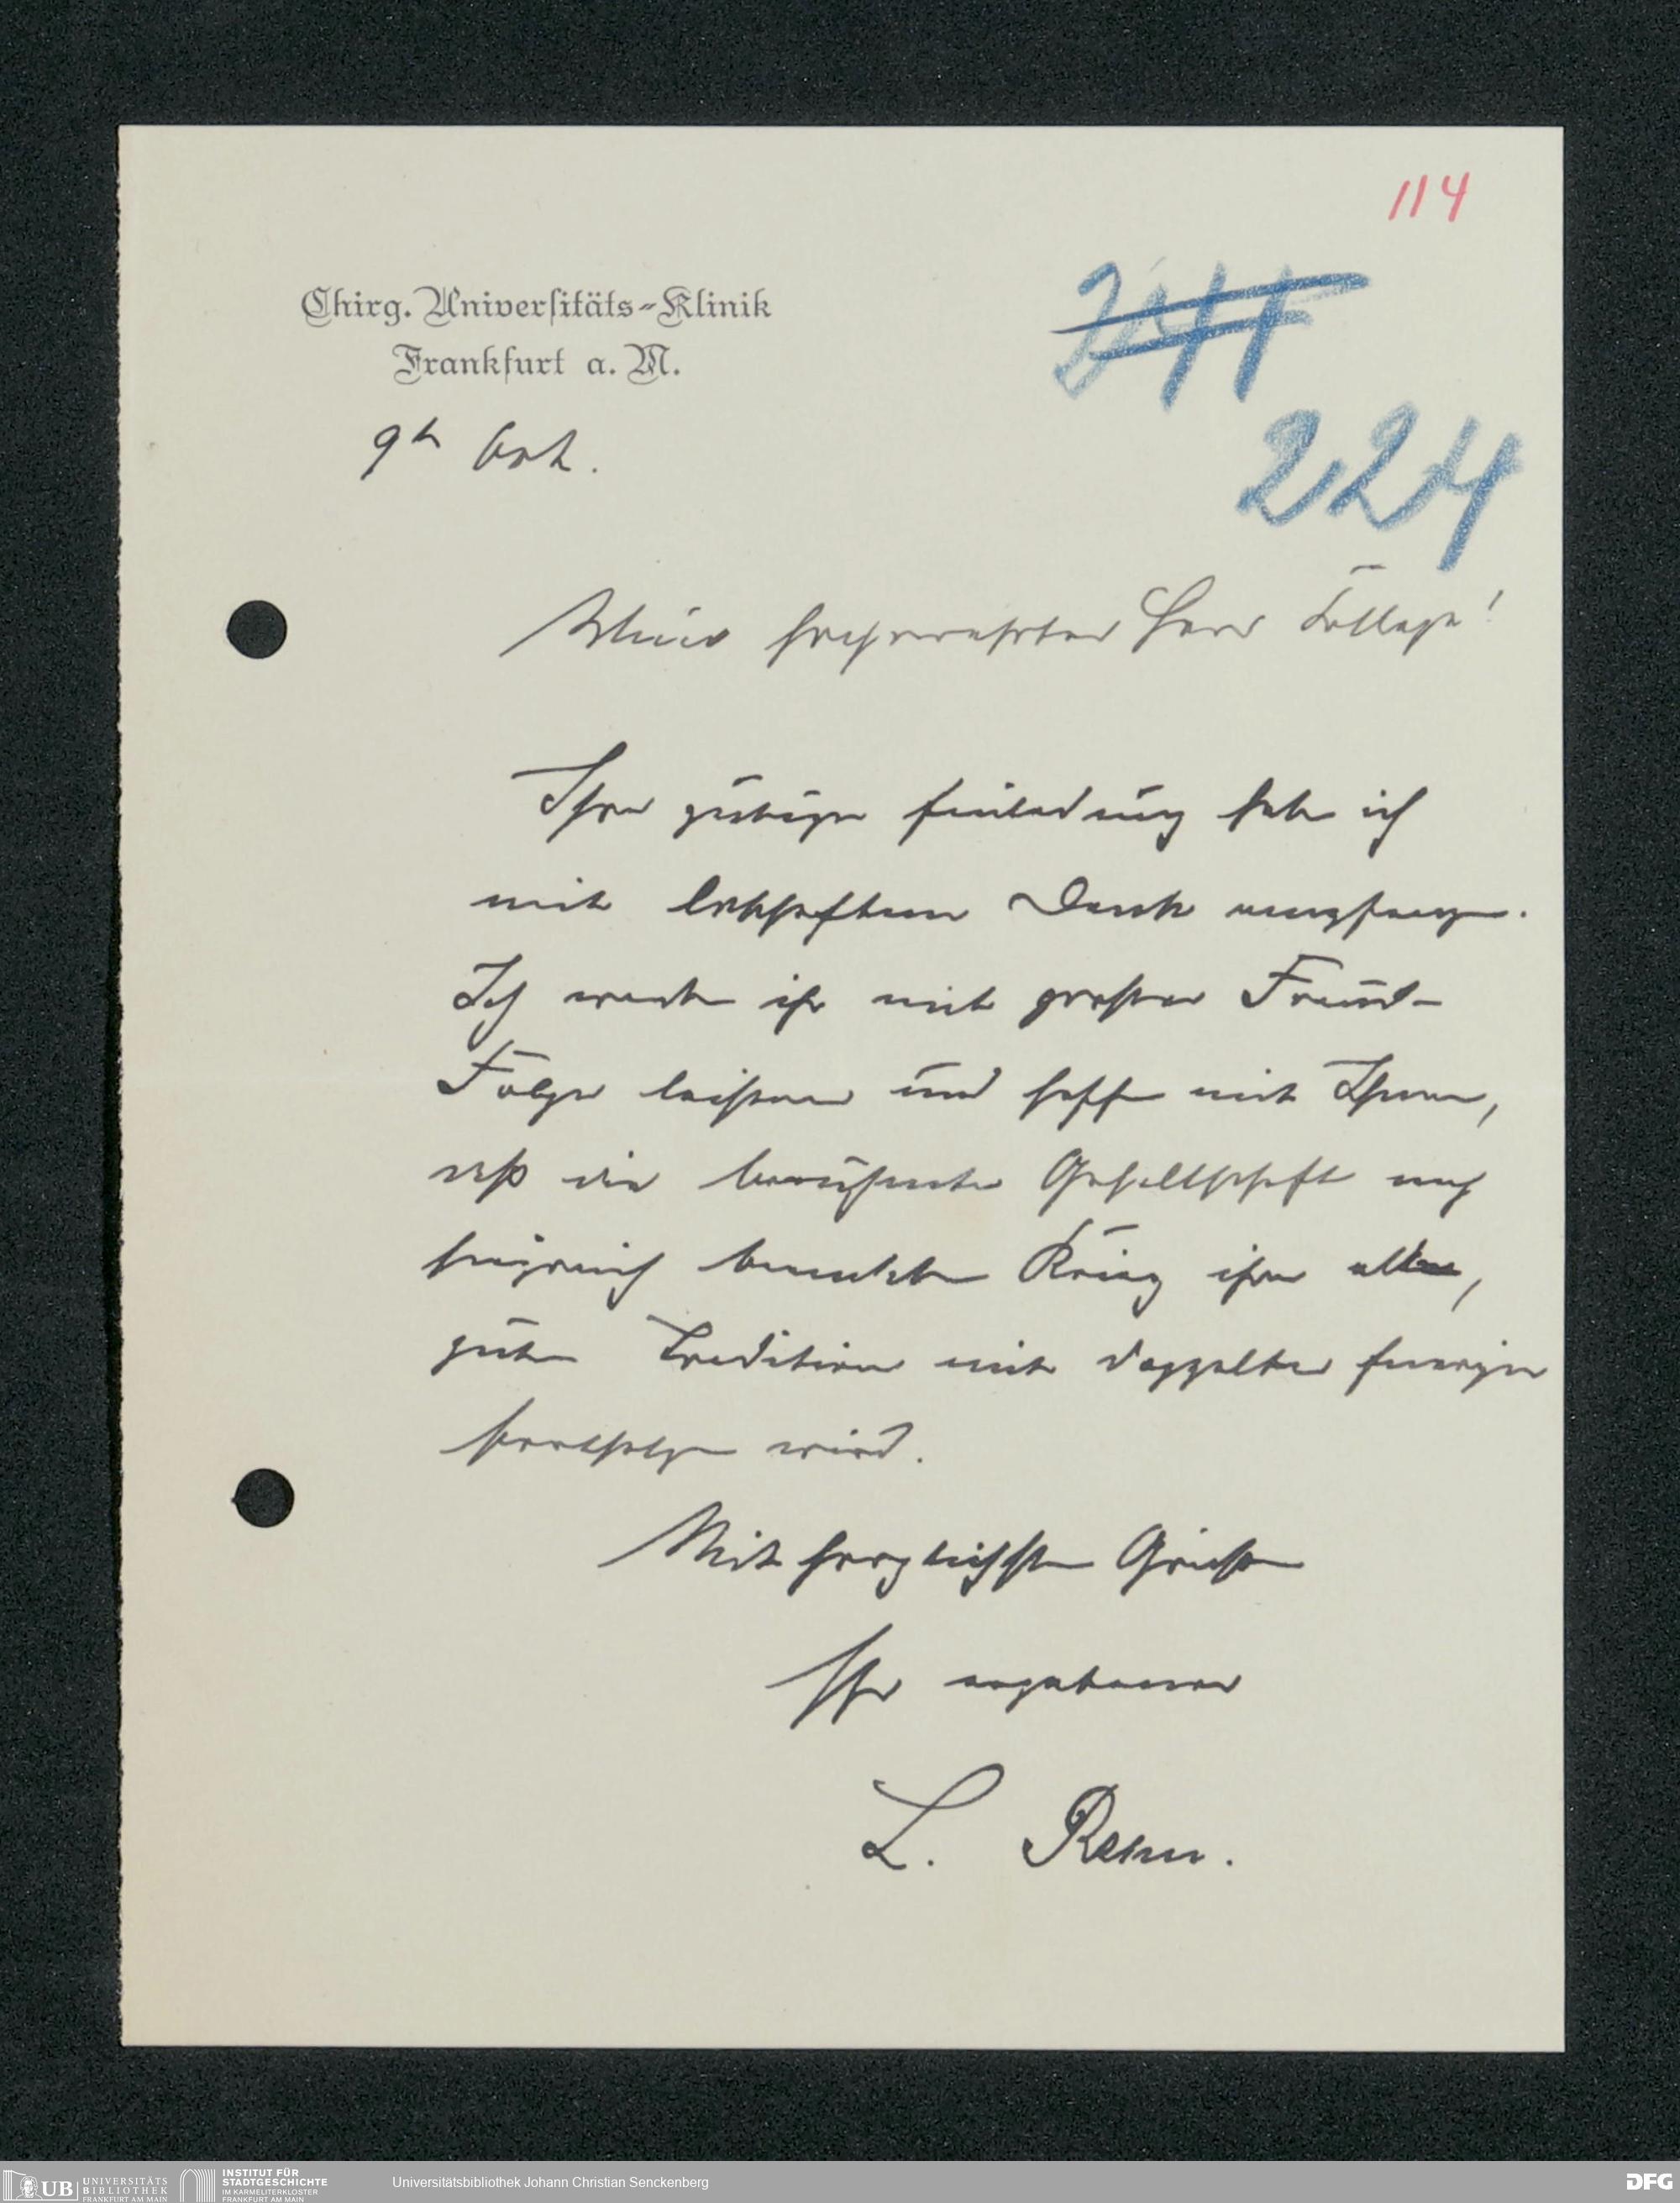 114
Chirg. Universitäts-Klinik
Frankfurt a. M.
244
9th Okt.
224
Mein hochverehrter Herr Kollege!
Ihre gütige Einladung habe ich
mit lebhaftem Dank empfangen.
Ich werde ihr mit großer Freude
Folge leisten und hoffe mit Ihnen,
daß die berühmte Gesellschaft nach
siegreich beendetem Krieg ihre alte,
gute Tradition mit doppelter Energie
fortsetzen wird.
Mit herzlichsten Grüßen
Ihr ergebener
L. Rehn.
UB UNIVERSITÄTS
BIBLIOTHEK
FRANKFURT AM MAIN
INSTITUT FÜR
STADTGESCHICHTE
IM KARMELITERKLOSTER
FRANKFURT AM MAIN
Universitätsbibliothek Johann Christian Senckenberg
DFG